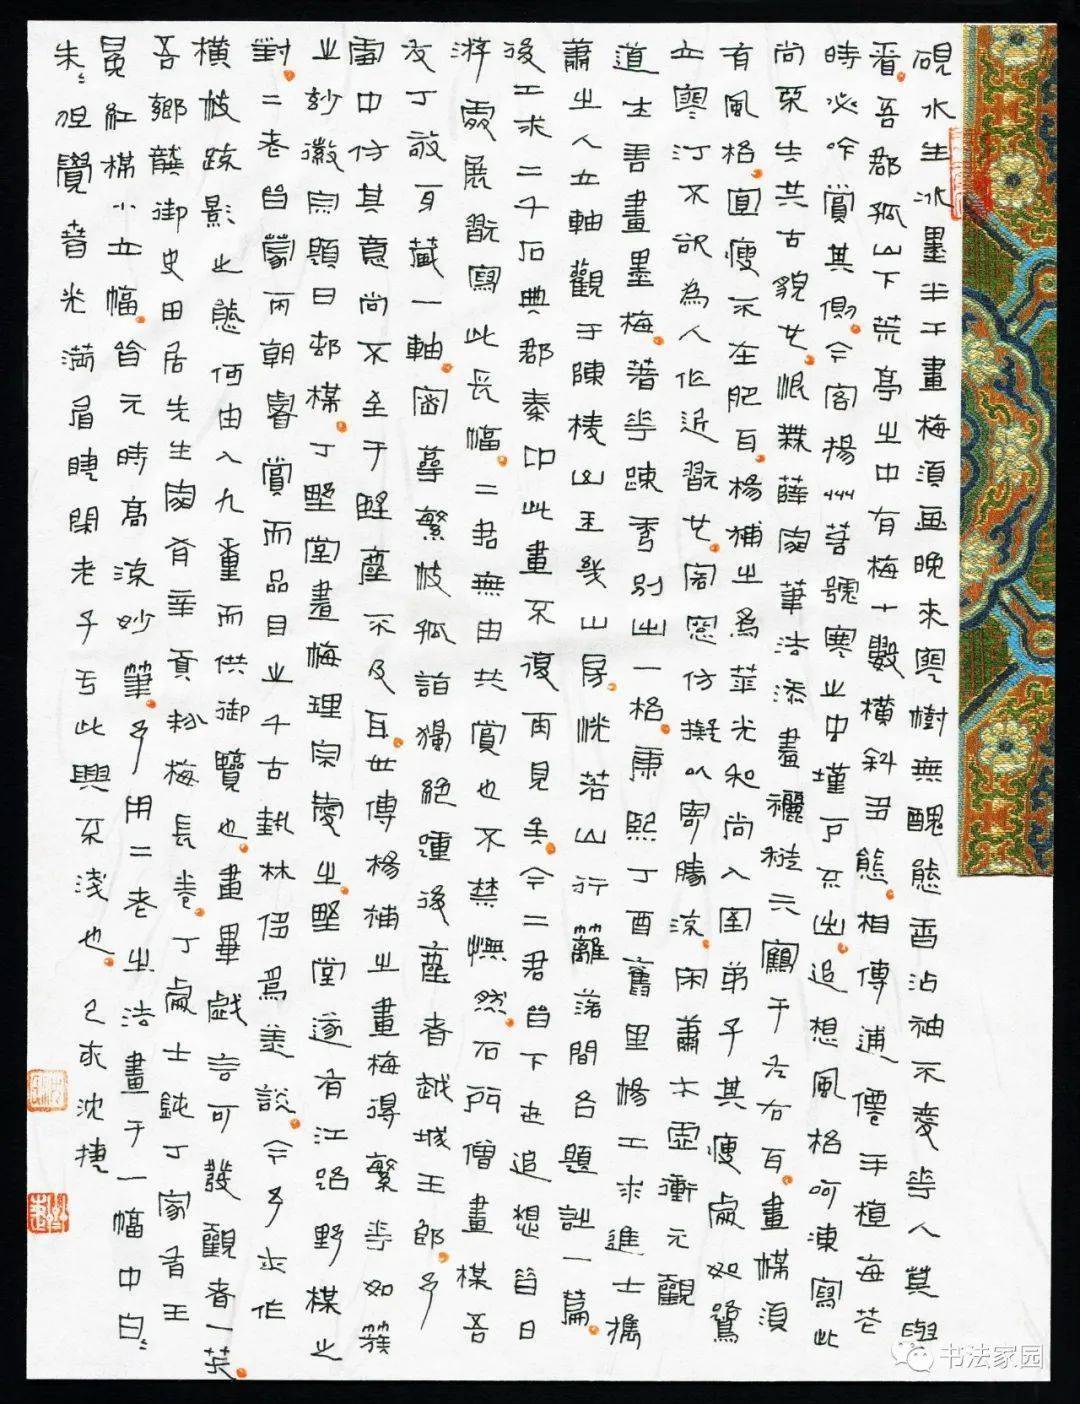 硯水生冰墨半干畫梅須畫晚來寒樹無醜態香沾袖不愛花人莫與
看吾郡孤山下荒亭之中有梅十數橫斜多態相傳逋僊手植每花
時必吟賞其側今客揚州號寒之中墐戶不出追想風格呵凍寫此
尚栗生共古貌也恨無薛家筆法添畫襹褷六鶴于左右耳畫楳須
有風格宜瘦不在肥耳楊補之為華光和尚入室弟子其瘦處如鷺
立寒汀不欲為人作近翫也客窗仿擬以寄勝流閑蕭士雲衝元觀
道士吾畫墨梅著花疎秀別出一格康熙丁酉舊里楊工求進士攜
蕭山人立軸觀于陳棱山玉幾山房恍若山行籬落間各題詩一篇
後工求二千石典郡泰此畫不復再見矣今二君皆下世追想昔日
游處展翫寫此長幅二君無由共賞也不禁憮然石門僧畫楳吾
友丁敬身藏一軸密萼繁枝孤詣獨絕踵後塵者越城王郎多
雷中仿其意尚不至于輕塵不及耳世傳楊補之畫梅得繁花如簇
之妙徽宗題曰邨楳丁野堂畫梅理宗愛之野堂遂有江路野楳之
對二老皆蒙兩朝睿賞而品目之千古藝林侈為美談今多求作
橫枝疎影之態何由入九重而供御覽也畫畢戲言可發觀者一笑
吾鄉龔御史田居先生家有辛貢粉梅長卷丁處士鈍丁家有王
冕紅楳小立幅皆元時高流妙筆多用二老之法畫于一幅中白〻
朱〻但覺春光滿眉睫間老子于此興不淺也 己亥沈捷
书法家园